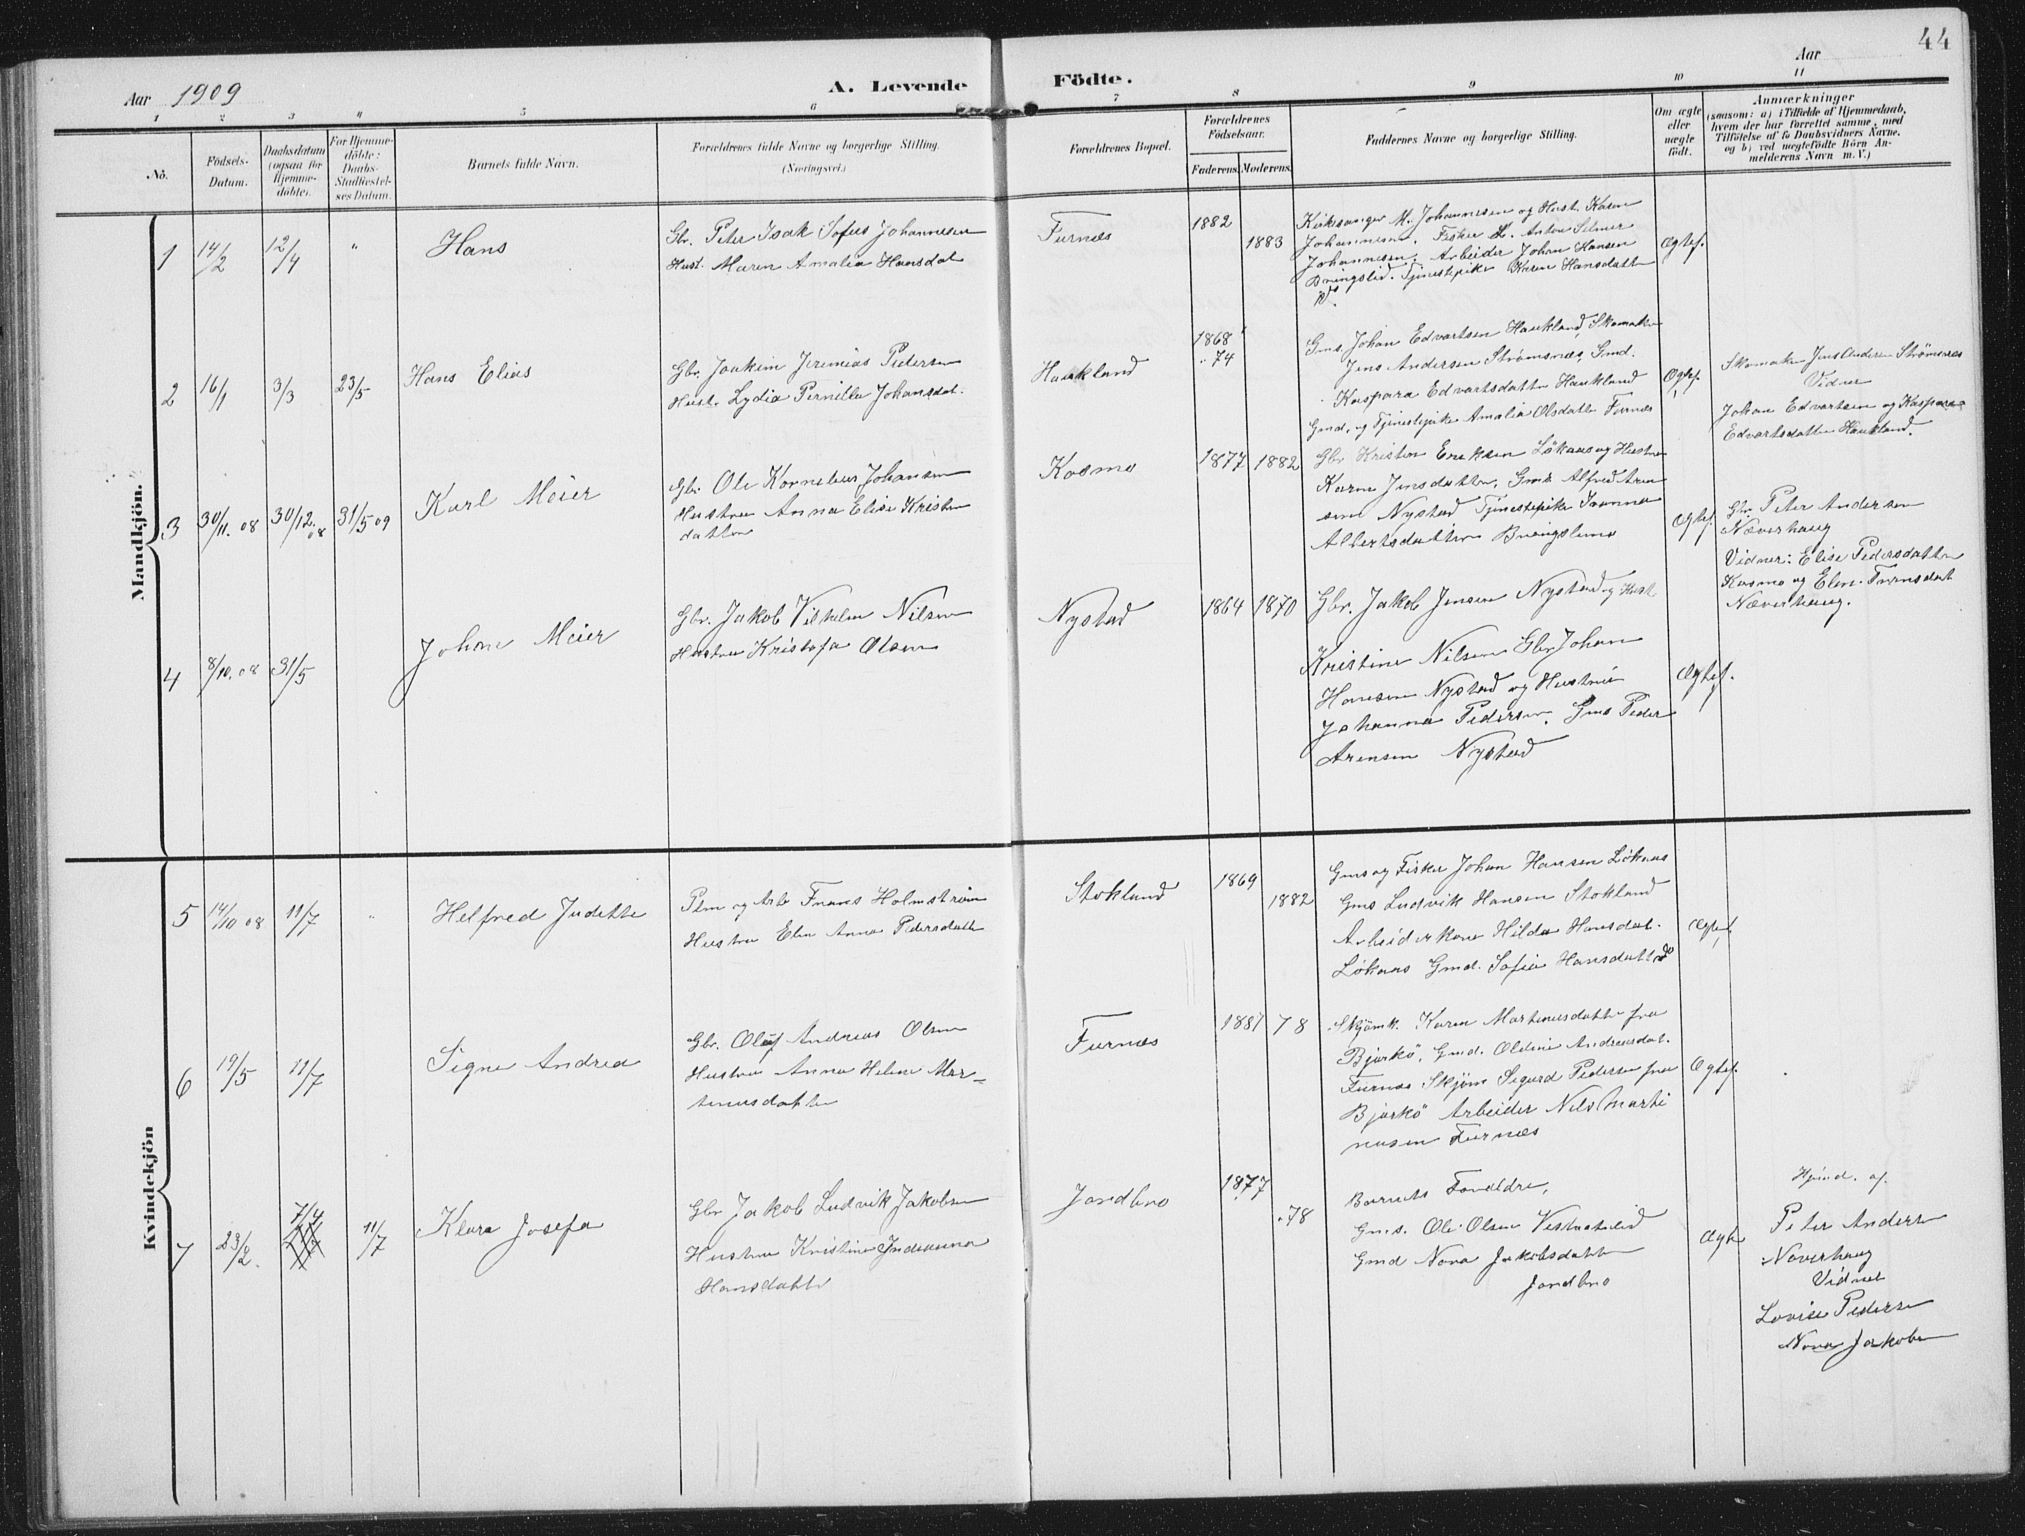 44
Aar 1909
A. Levende Födte.
Aar
1 2 3 4 5 6 7 8 9 10 11
No.
Födsels-
Datum.
Daabsdatum
(ogsaa for
Hjemme-
döbte).
For Hjemme-
döbte:
Daabs-
Stadfæstel-
ses Datum.
Barnets fulde Navn.
Forældrenes fulde Navne og borgerlige Stilling.
(Næringsvei.)
Forældrenes Bopæl.
Forældrenes
Födselsaar.
Faderens. Moderens.
Faddernes Navne og borgerlige Stilling.
Om ægte
eller
uægte
født.
Anmærkninger
(saasom: a) i Tilfælde af Hjemmedaab,
hvem der har forrettet samme, med
Tilföielse af to Daabsvidners Navne,
og b) ved uegtefödte Börn An-
melderens Navn m. V.)
Mandkjön.
1 14/2 12/4 "
Hans
Gbr. Peter Isak Sofus Johannesen
Hust. Maren Amalia Hansdat
Furnæs
1882
1883
Kirkesanger M. Johannesen og Hust. Karen
Johannesen. Fisker Anton Selmer
Johannesen. Arbeider Johan Hansen
Bringslid. Tjenestepike Karen Hansdatte
do
Ægtef.
2 16/1 3/3 23/5
Hans Elias
Gbr. Joakim Jeremias Pedersen
Hust. Lydia Pernille Johansdat.
Haukland
1868
74
Gms. Johan Edvartsen Haukland, Skomaker
Jens Andersen Strømsnæs, Gmd.
Kaspara Edvartsdatte Haukland
Gmd. og Tjenestepike Amalia Olsdatte Furnæs
Ægtef.
Skomaker Jens Andersen Strømsnæs
Vidner
Johan Edvartsen og Kaspara
Edvartsdatte Haukland.
3 30/11. 08 30/12. 08 31/5 09
Karl Meier
Gbr. Ole Kornelius Johansen
Hustru Anna Elise Kristen
datter
Kosmo
1877 1882
Gbr Kristen Eriksen Løkaas og Hustru
Karen Jensdatter, Gms. Alfred Aren
sen Nystad Tjenestepike
Albertsdatter Bringslimo
Ægtef.
Gbr. Peter Andersen
Næverhaug
Vidner: Elise Pedersdatter
Kosmo og Elen
Næverhaug.
4 8/10. 08 31/5
Johan Meier
Gbr. Jakob Vilhelm Nilsen
Hustru Kristofa Olsen
Nystad
1864 1870
Gbr. Jakob Jensen Nystad og Hust
Kristine Nilsen Gbr Johan
Hansen Nystad og Hustru
Johanna Pedersen. Gms Peder
Arensen Nystad
Ægtef.
Kvindekjön
5 14/10 08 11/7 "
Helfred Judette
Plm og Arb Frans Holmstrøm
Hustru Elen Anna Pedersdatte
Stokland
1869
1882
Gms og Fisker Johan Hansen Løkaas
Gms Ludvik Hansen Stokland
Arbeiderkone Hilda Hansdat.
Løkaas Gmd. Sofia Hansdatte do
Ægtef.
6 19/5 11/7
Signe Andrea
Gbr. Oluf Andreas Olsen
Hustru Anna Helene Mar-
tinusdatter
Furnæs
1881 78
Skjømk. Karen Martinusdatte fra
Bjarkö, Gmd. Oldine Andreasdat.
Furnæs Skjøm Sigurd Pedersen fra
Bjarkö Arbeider Nils Marti
nusen Furnæs
Ægtef.
7 23/2. 7/4 11/7
Klara Josefa
Gbr Jakob Ludvik Jakobsen
Hustru Kristine Indianna
Hansdatte
Jordbro
1877
78
Barnets Foreldre,
Gms. Ole Olsen Vestvatnlid
Gmd Nora Jakobsdatte
Jordbro
Ægte
Hjemd. af
Peter Andersen
Naverhaug
Vidner
Lovise Pedersen
Nora Jakobsen